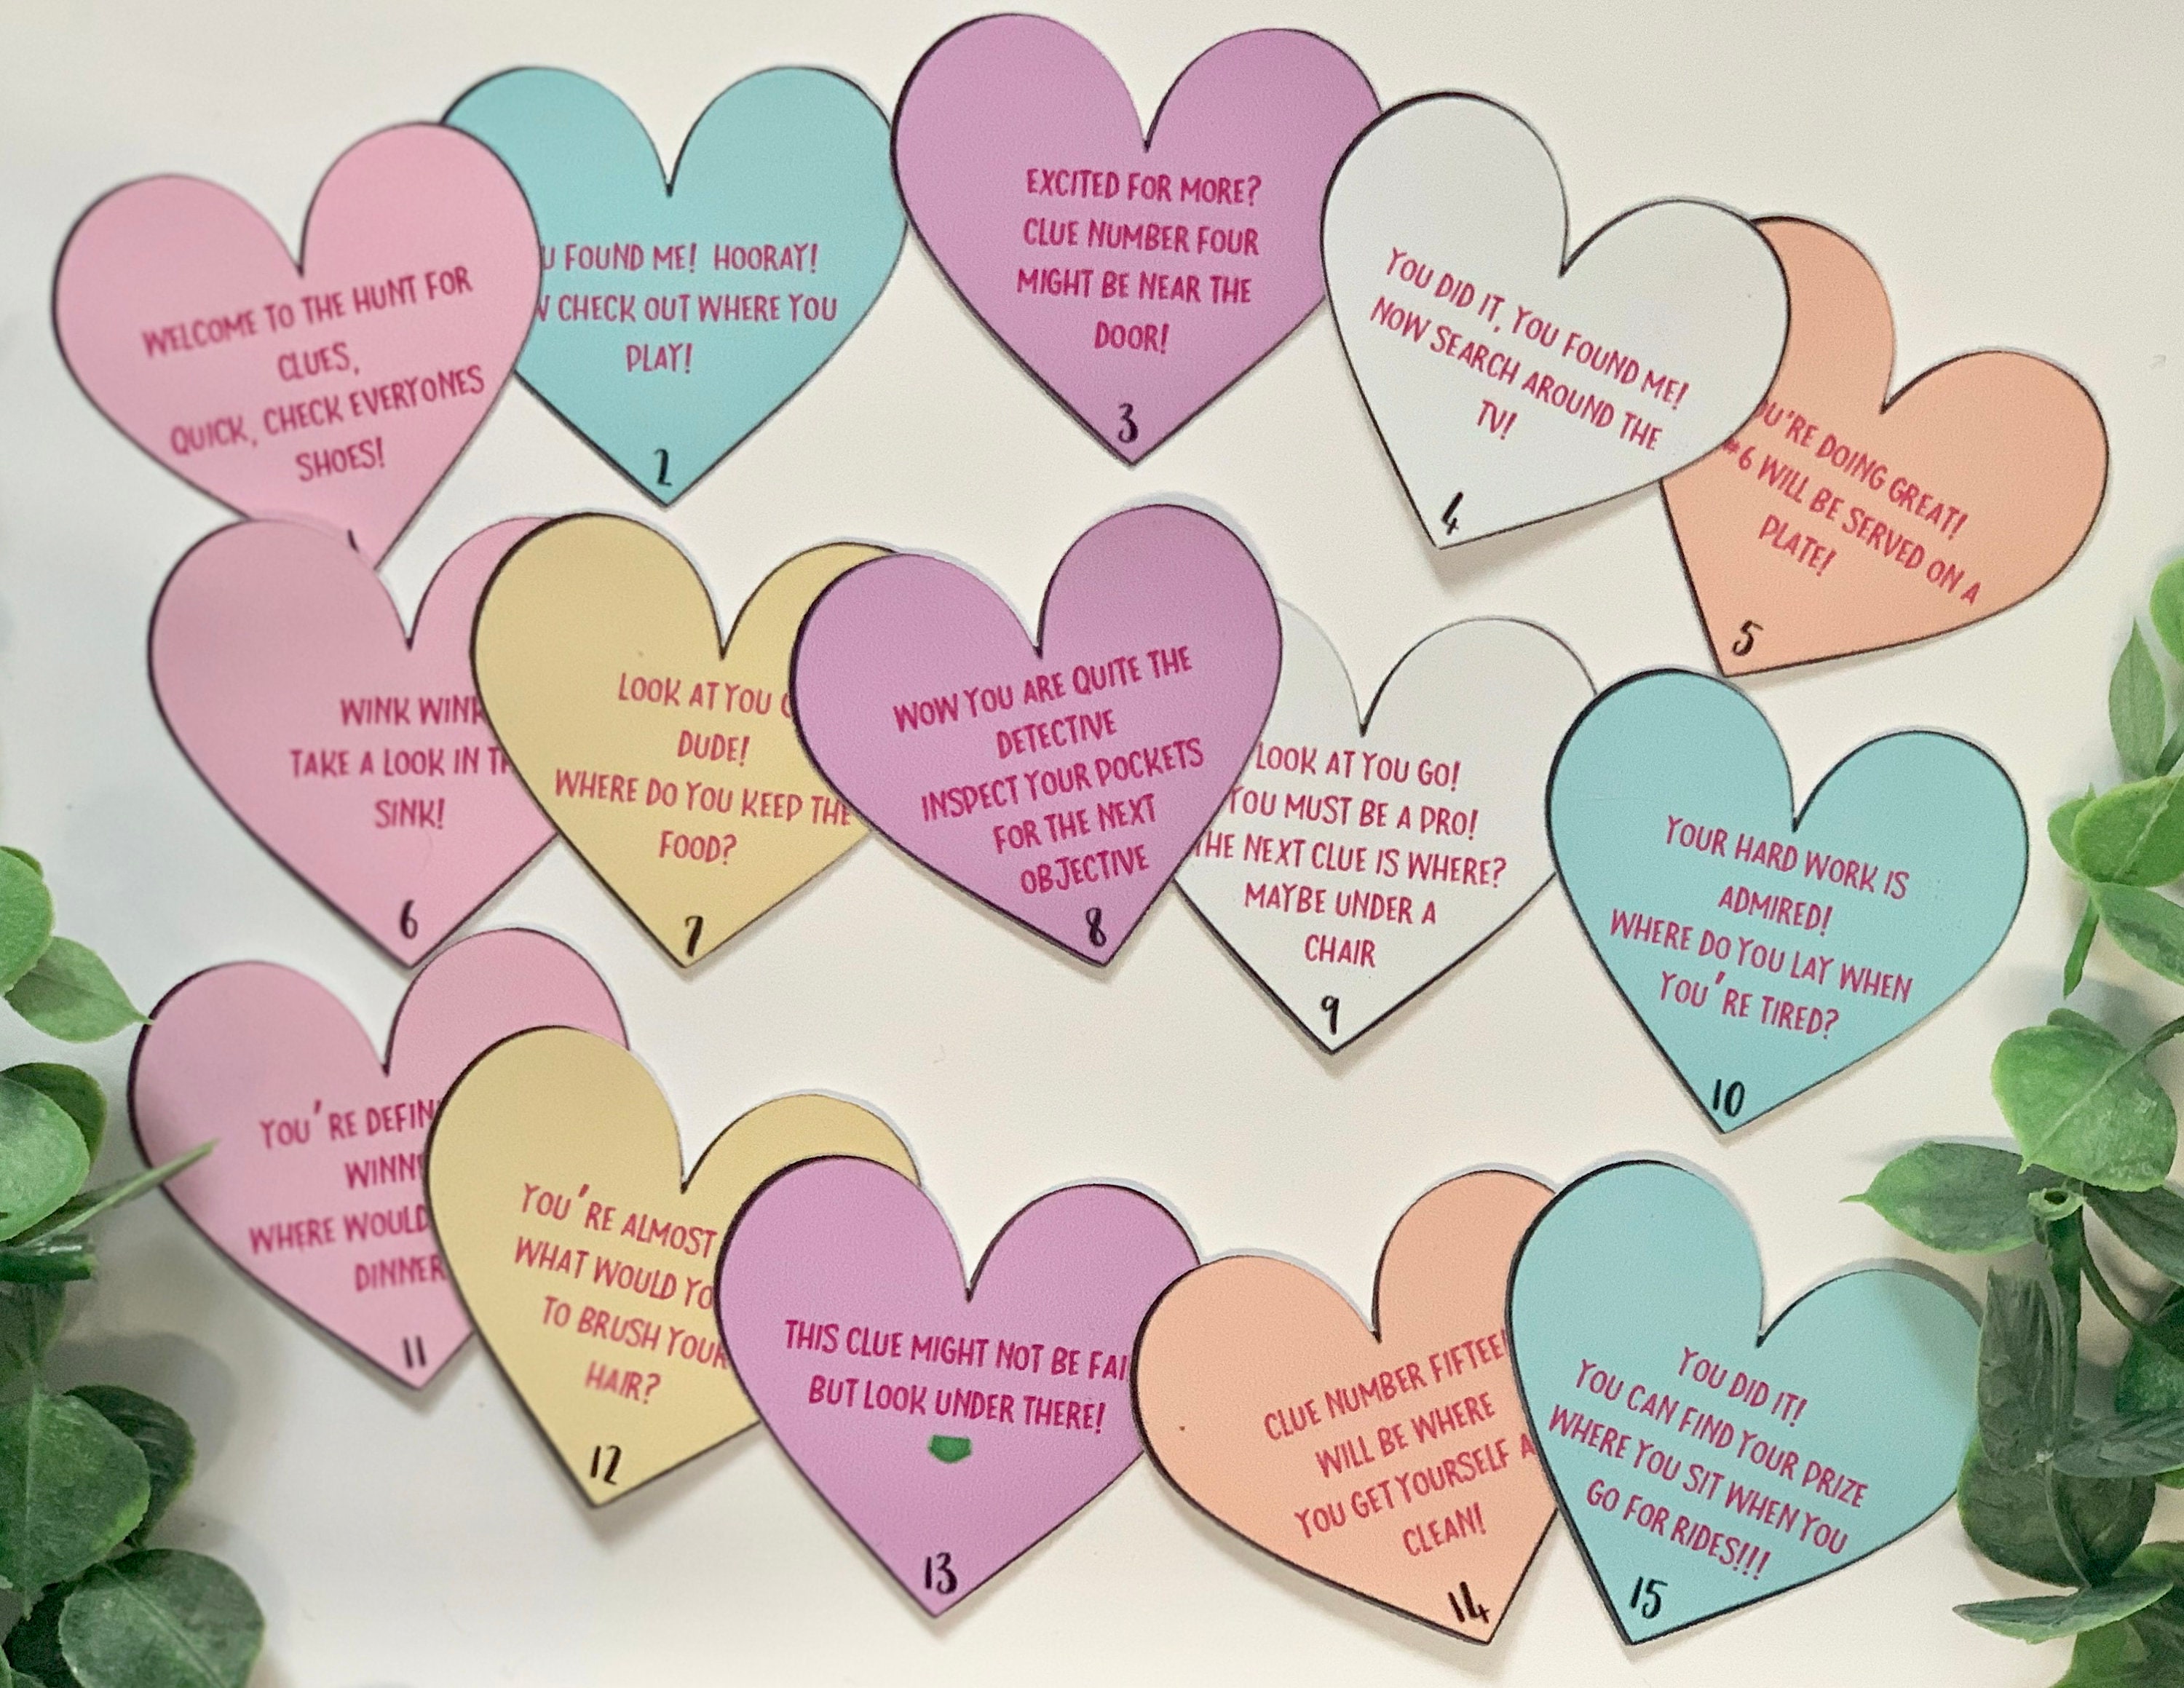 WELCOME TO THE HUNT FOR
CLUES,
QUICK, CHECK EVERYONES
SHOES!
1
FOUND ME! HOORAY!
CHECK OUT WHERE YOU
PLAY!
2
EXCITED FOR MORE?
CLUE NUMBER FOUR
MIGHT BE NEAR THE
DOOR!
3
YOU DID IT, YOU FOUND ME!
NOW SEARCH AROUND THE
TV!
4
YOU'RE DOING GREAT!
#6 WILL BE SERVED ON A
PLATE!
5
WINK WINK
TAKE A LOOK IN
SINK!
6
LOOK AT YOU
DUDE!
WHERE DO YOU KEEP THE
FOOD?
7
WOW YOU ARE QUITE THE
DETECTIVE
INSPECT YOUR POCKETS
FOR THE NEXT
OBJECTIVE
8
LOOK AT YOU GO!
YOU MUST BE A PRO!
THE NEXT CLUE IS WHERE?
MAYBE UNDER A
CHAIR
9
YOUR HARD WORK IS
ADMIRED!
WHERE DO YOU LAY WHEN
YOU'RE TIRED?
10
YOU'RE
WHERE WOULD
DINNER
11
YOU'RE ALMOST
WHAT WOULD
TO BRUSH YOUR
HAIR?
12
THIS CLUE MIGHT NOT BE
BUT LOOK UNDER THERE!
13
CLUE NUMBER FIFTEEN
WILL BE WHERE
YOU GET YOURSELF
CLEAN!
14
YOU DID IT!
YOU CAN FIND YOUR PRIZE
WHERE YOU SIT WHEN YOU
GO FOR RIDES!!!
15